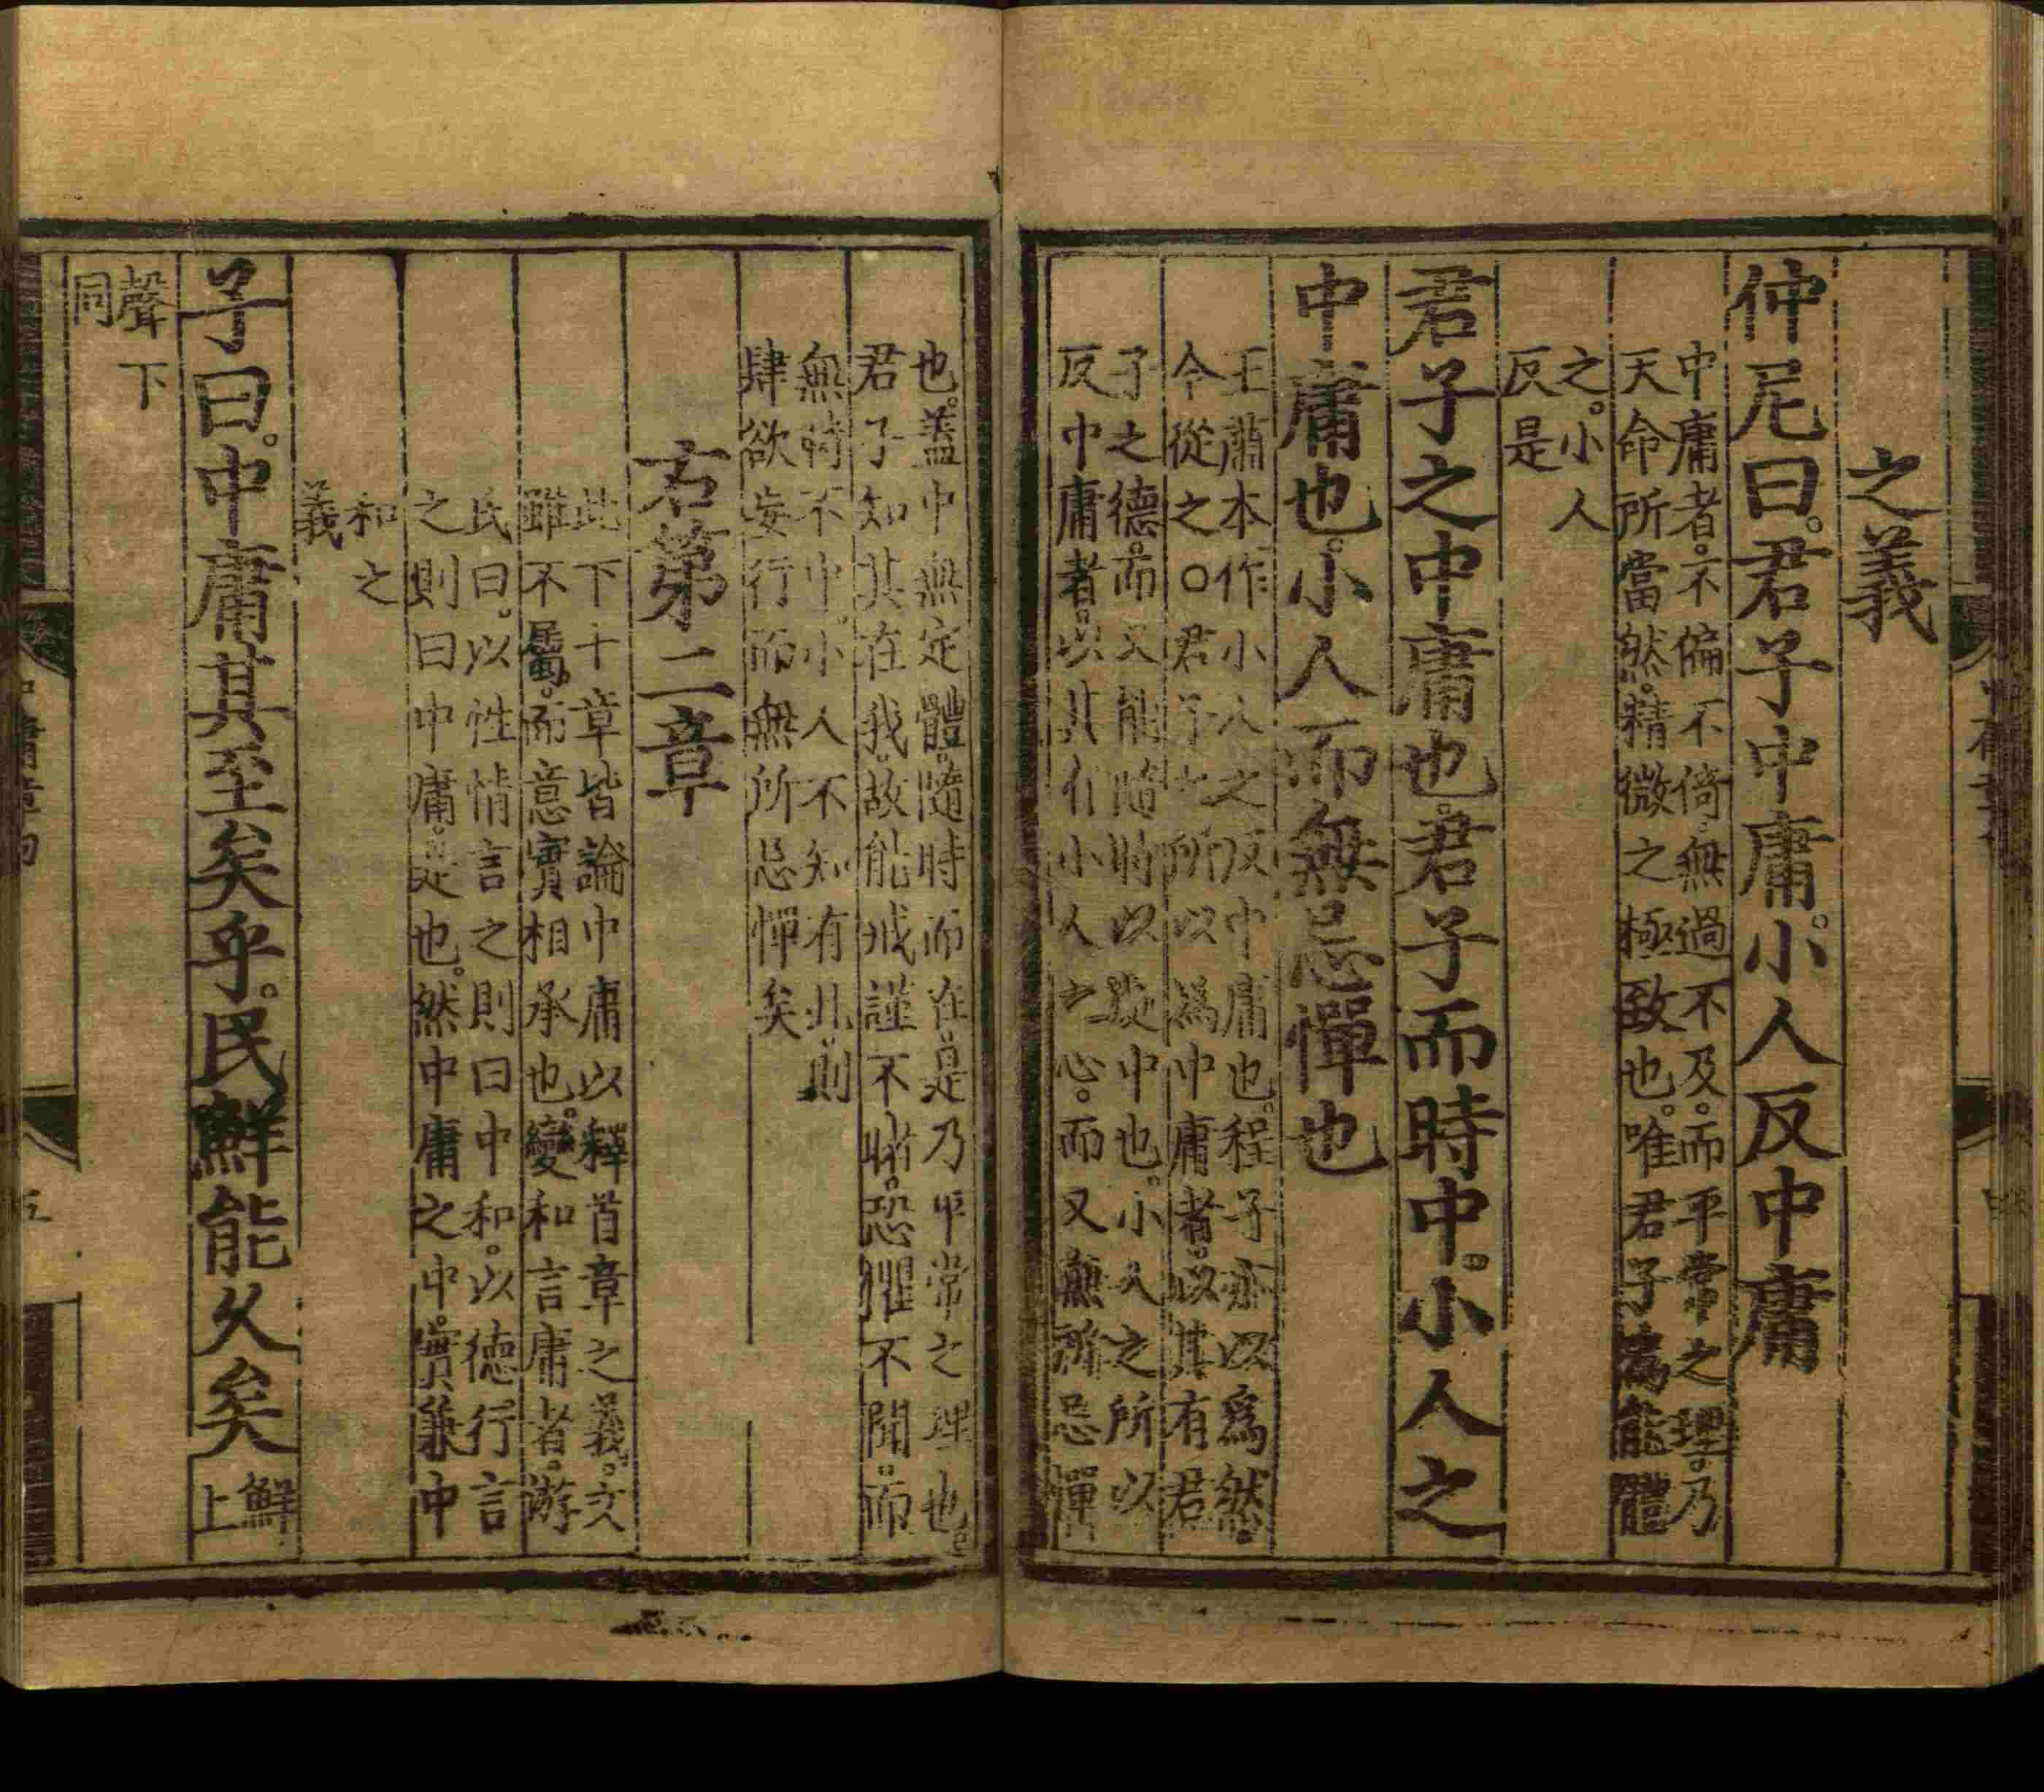 之義
仲尼曰。君子中庸。小人反中庸
中庸者。不偏不倚。無過不及。而平常之理。乃
天命所當然。精微之極致也。唯君子為能體
之。小人
反是
君子之中庸也。君子而時中。小人之
中庸也。小人而無忌憚也
王肅本作小人之反中庸也。程子亦以爲然。
今從之○君子之所以爲中庸者。以其有君
子之德。而又能隨時以處中也。小人之所以
反中庸者。以其有小人之心。而又無所忌憚
也。盖中無定體。隨時而在。是乃平常之理也
君子知其在我。故能戒謹不睹。恐懼不聞。而
無時不中。小人不知有此。則
肆欲妄行而無所忌憚矣
右第二章
此下十章皆論中庸以釋首章之義。文
雖不屬。而意實相承也。變和言庸者。游
氏曰。以性情言之則曰中和。以德行言
之則曰中庸。是也。然中庸之中。實兼中
和之
義
子曰。中庸其至矣乎。民鮮能久矣
鮮
上
聲下
同
中庸章句
五